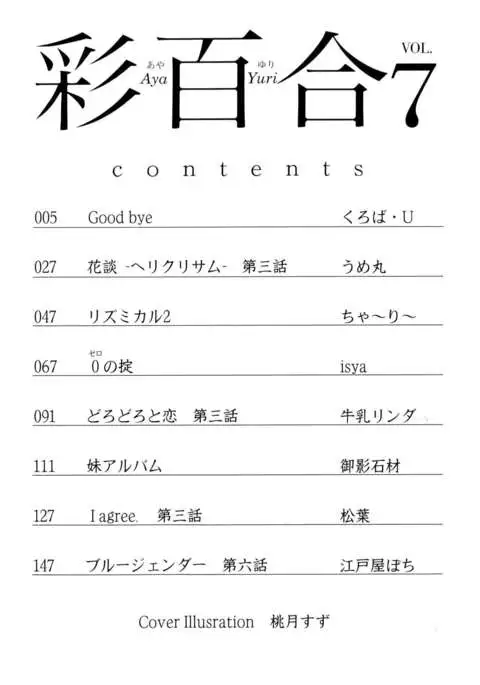 彩百合 VOL. 7
あや Aya ゆり Yuri
contents
005 Good bye くろば・U
027 花談 -ヘリクリサム- 第三話 うめ丸
047 リズミカル2 ちゃ〜り〜
ゼロ
067 0の掟 isya
091 どろどろと恋 第三話 牛乳リンダ
111 妹アルバム 御影石材
127 I agree. 第三話 松葉
147 ブルージェンダー 第六話 江戸屋ぽち
Cover Illusration 桃月すず